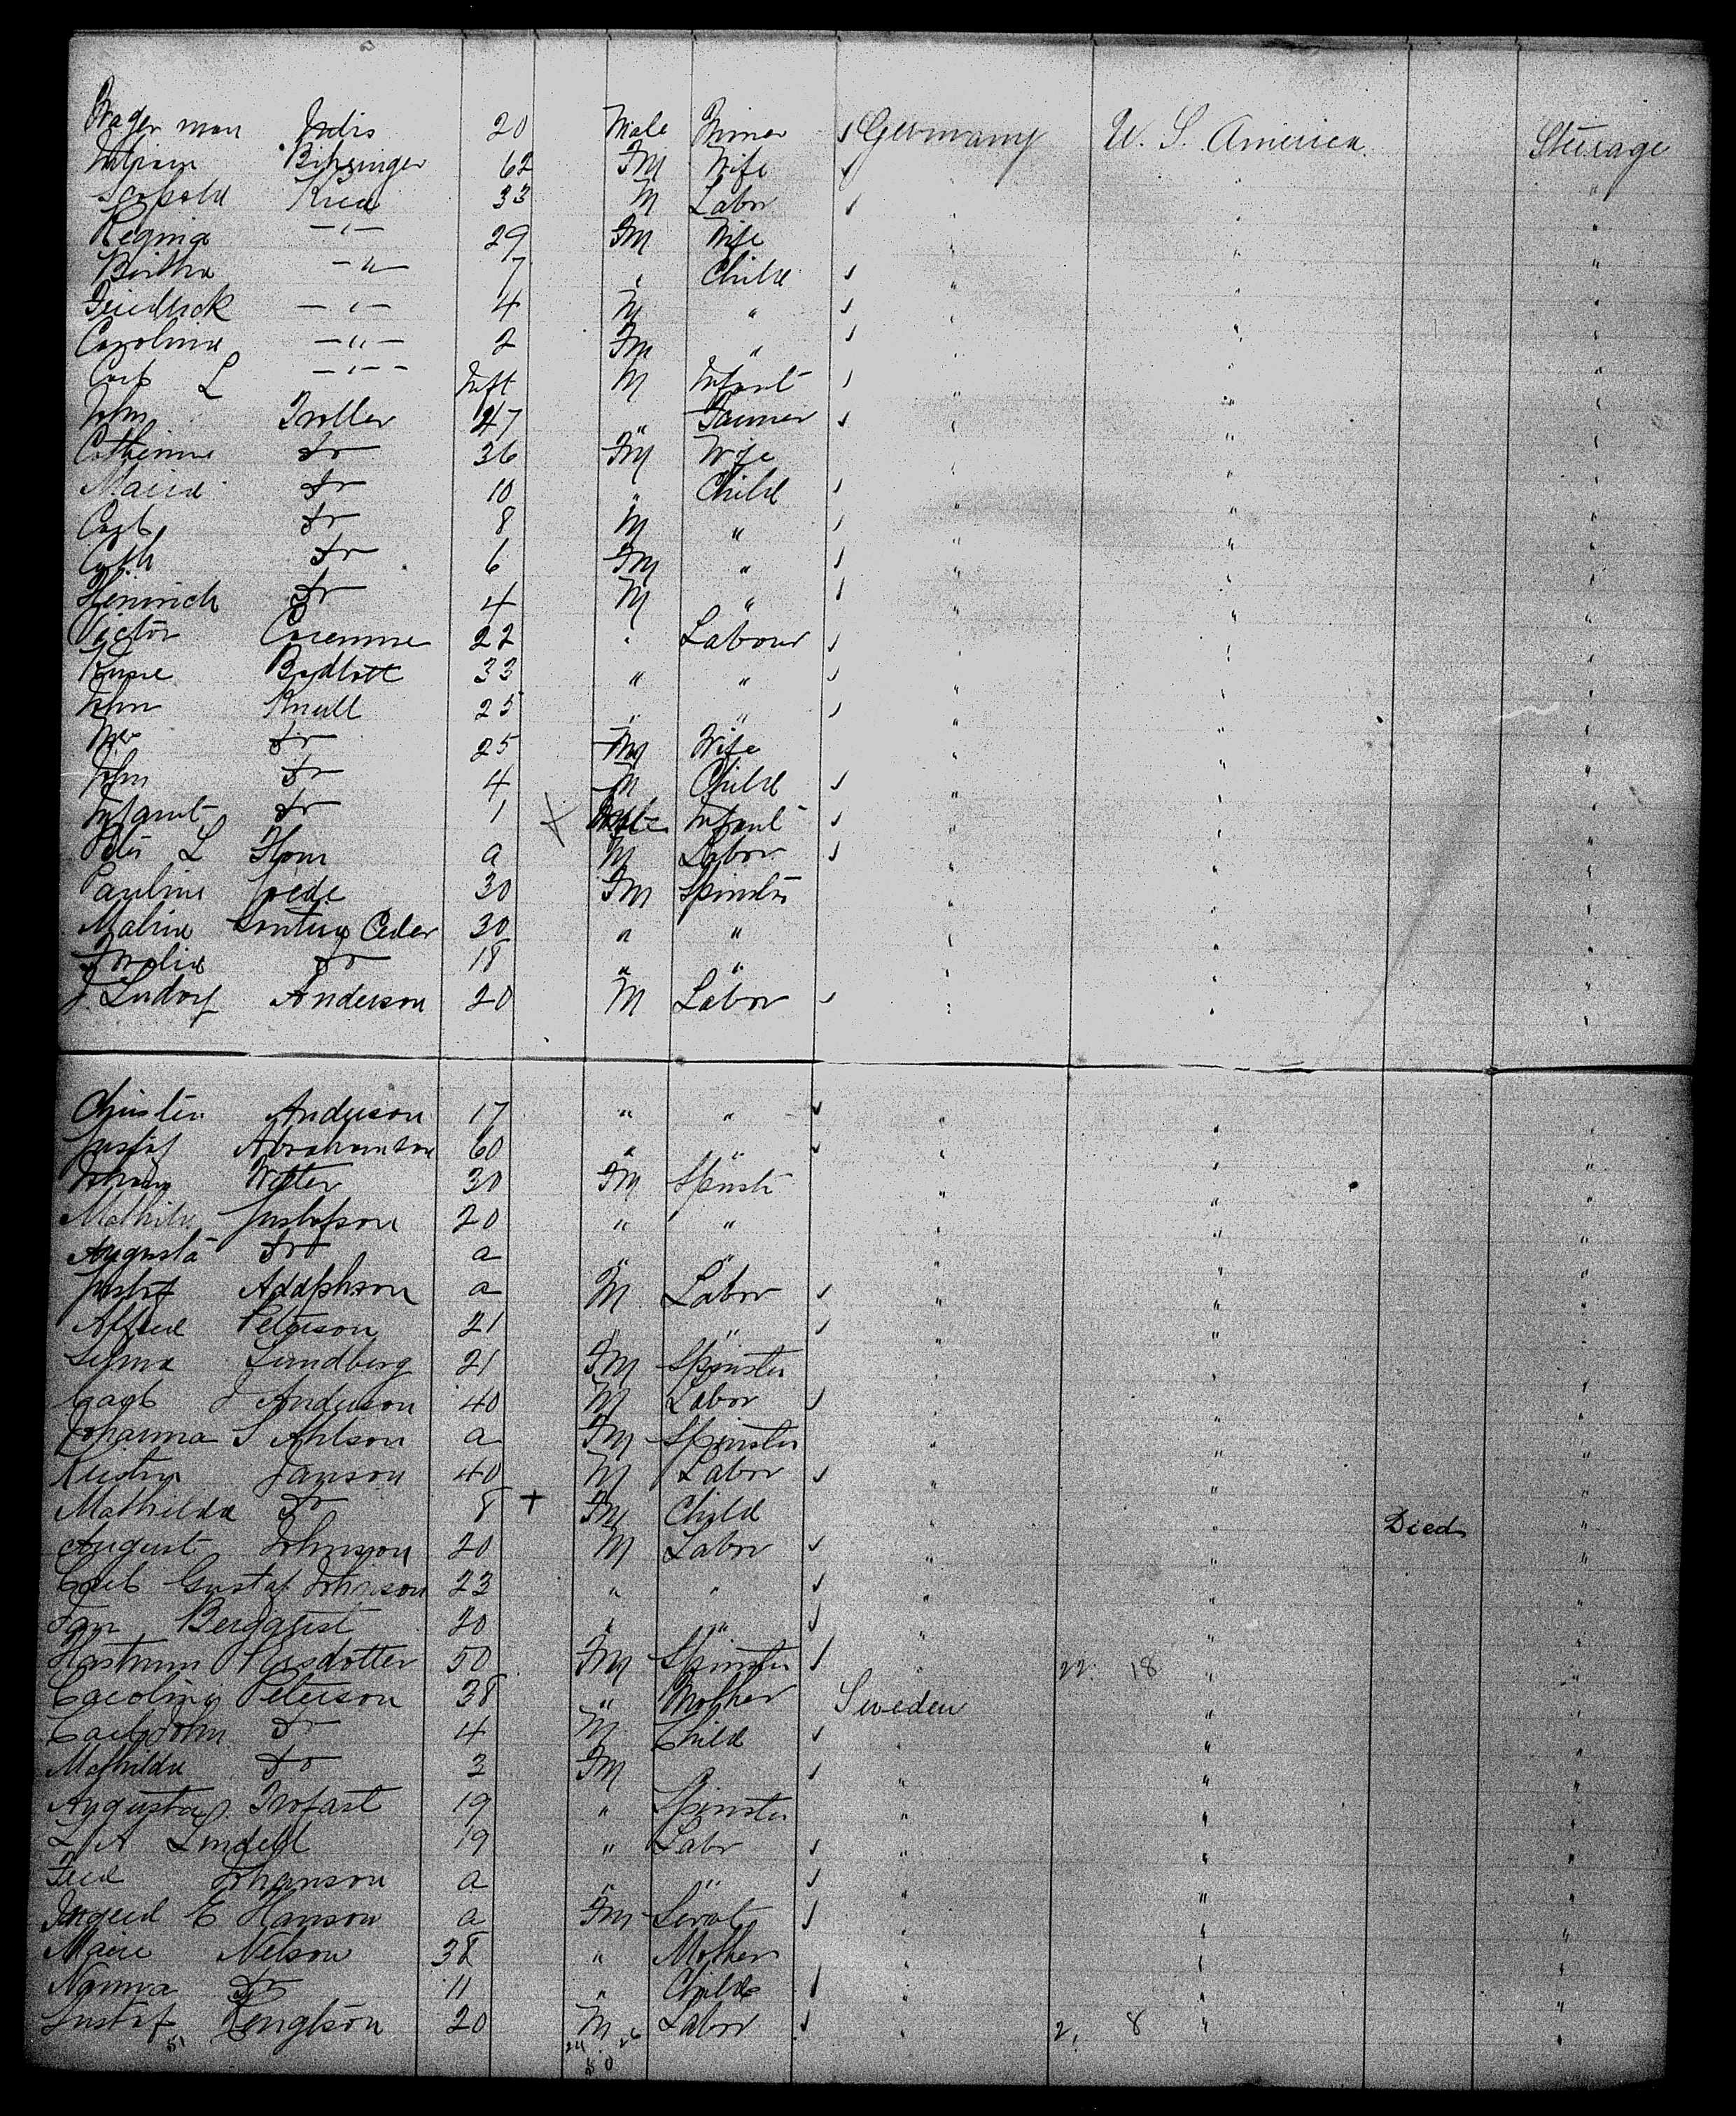 20 Male Germany U. S. America Steerage
62 Fm Wife "
Leopold 33 M Labor "
Regina —"— 29 Fm Wife " "
Bertha —"— 7 " Child " " "
Friedrick —"— 4 M " "
Carolina —"— 2 Fm " " " "
Carl L —"— Inft M Infant " " "
John Troller 47 " Farmer " " "
Catherine Do 36 Fm Wife " " "
Maria Do 10 " Child " " "
Carl Do 8 M " " " "
Cath Do 6 Fm " " " "
Heinrich Do 4 M " " " "
Victor 22 " Labour " " "
33 " " " " "
John Knull 25 " " " " "
Mrs Do 25 Fm Wife " " "
John Do 4 M Child " " "
Infant Do 1 Infant " " "
Peter L a M Labor " " "
Pauline 30 Fm Spinster " " "
Ceder 30 " " " " "
Do 18 " " " " "
Anderson 20 M Labor " " "
Christen Anderson 17 " " " "
Gustaf Abrahamson 60 " " " " "
30 Fm Spinst " " "
Mathilda Gustafson 20 " " " " "
Augusta Do a " " " " "
Gustaf Adolphson a M Labor " " "
Alfred Peterson 21 " " " " "
Selma Lundberg 21 Fm Spinster " " "
Carl J Anderson 40 M Labor " " "
Johanna S Ahlson a Fm Spinster " " "
Janson 40 M Labor " " "
Mathilda Do 8 + Fm Child " " Died "
August Johnson 20 M Labor " " "
Carl Gustaf Johnson 23 " " " " "
Bergquist 20 " " " " "
50 Fm Spinster " 22 18 " "
Carolina Peterson 38 " Mother Sweden " "
Carl John Do 4 M Child " " "
Mathilda Do 3 Fm " " "
Augusta J. Trofast 19 " Spinster " " "
L A Lindell 19 " Labr " " "
Fred Johanson a " " " " "
Ingred C Hanson a Fm Servt " " "
Marie Nelson 38 " Mother " " "
Nanna Do 11 " Child " " "
Gustaf Bengtson 20 M Labor " 2, 8 " "
51 24 26
50